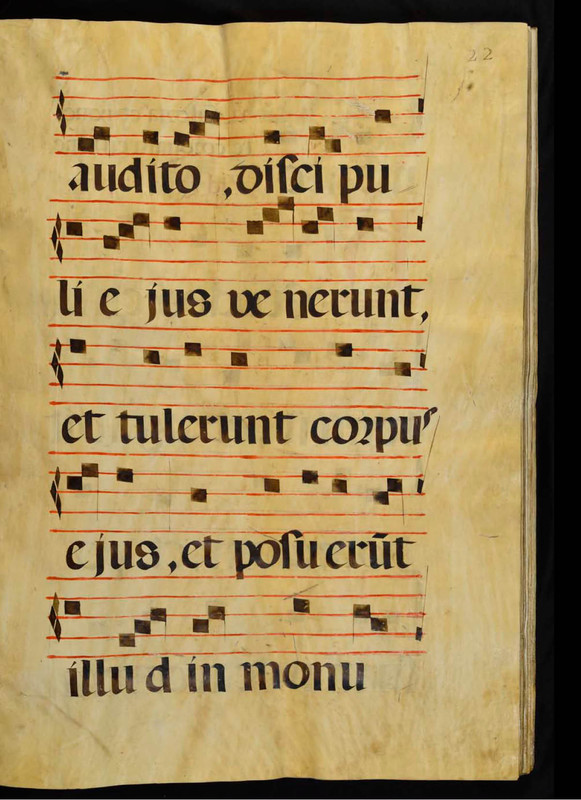 22
audito , disci pu
li e jus ve nerunt,
et tulerunt corpus
ejus , et posuerūt
illu d in monu